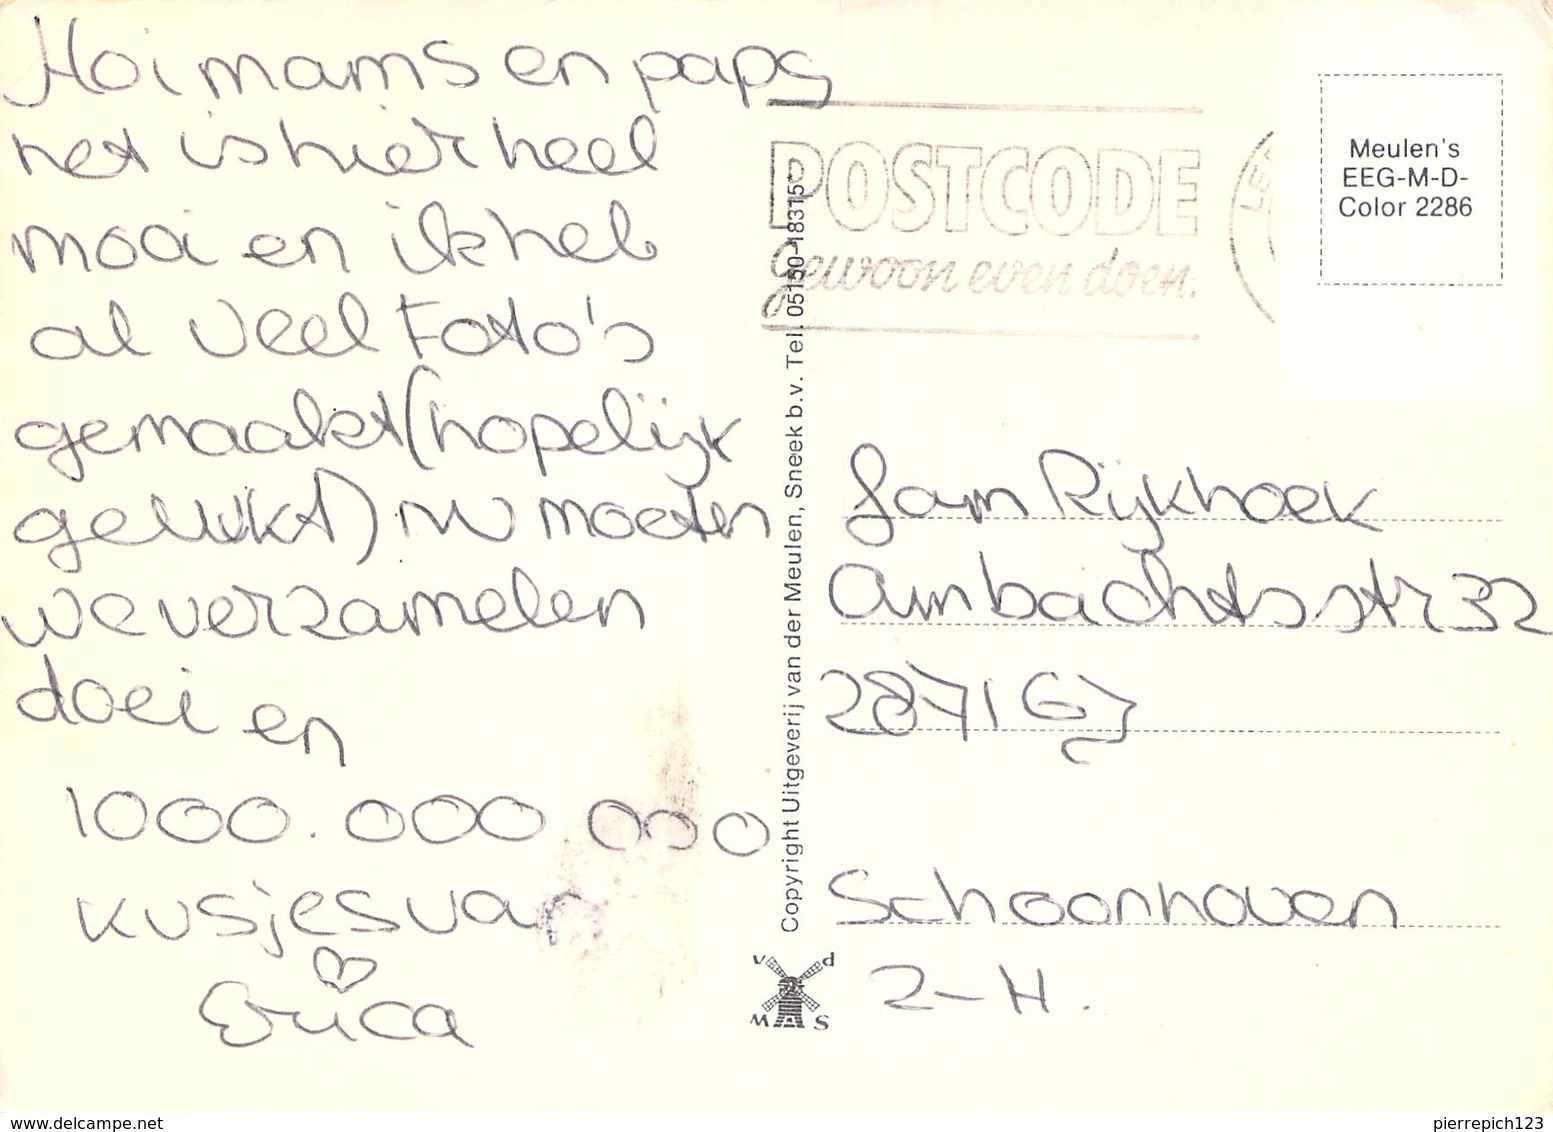 Hoi mams en paps
het is hier heel
mooi en ik heb
al veel Foto's
gemaakt (hopelijk
gelukt) nu moeten
we verzamelen
doei en
1000.000 000
kusjes van
Erica
POSTCODE
Gewoon even doen.
Meulen's
EEG-M-D-
Color 2286
Copyright Uitgeverij van der Meulen, Sneek b.v. Tel. 05150-18315
Fam Rijkhoek
Ambachtsstr 32
2871 GJ
Schoonhoven
Z-H.
v d
M S
delcampe.net
pierrepich123